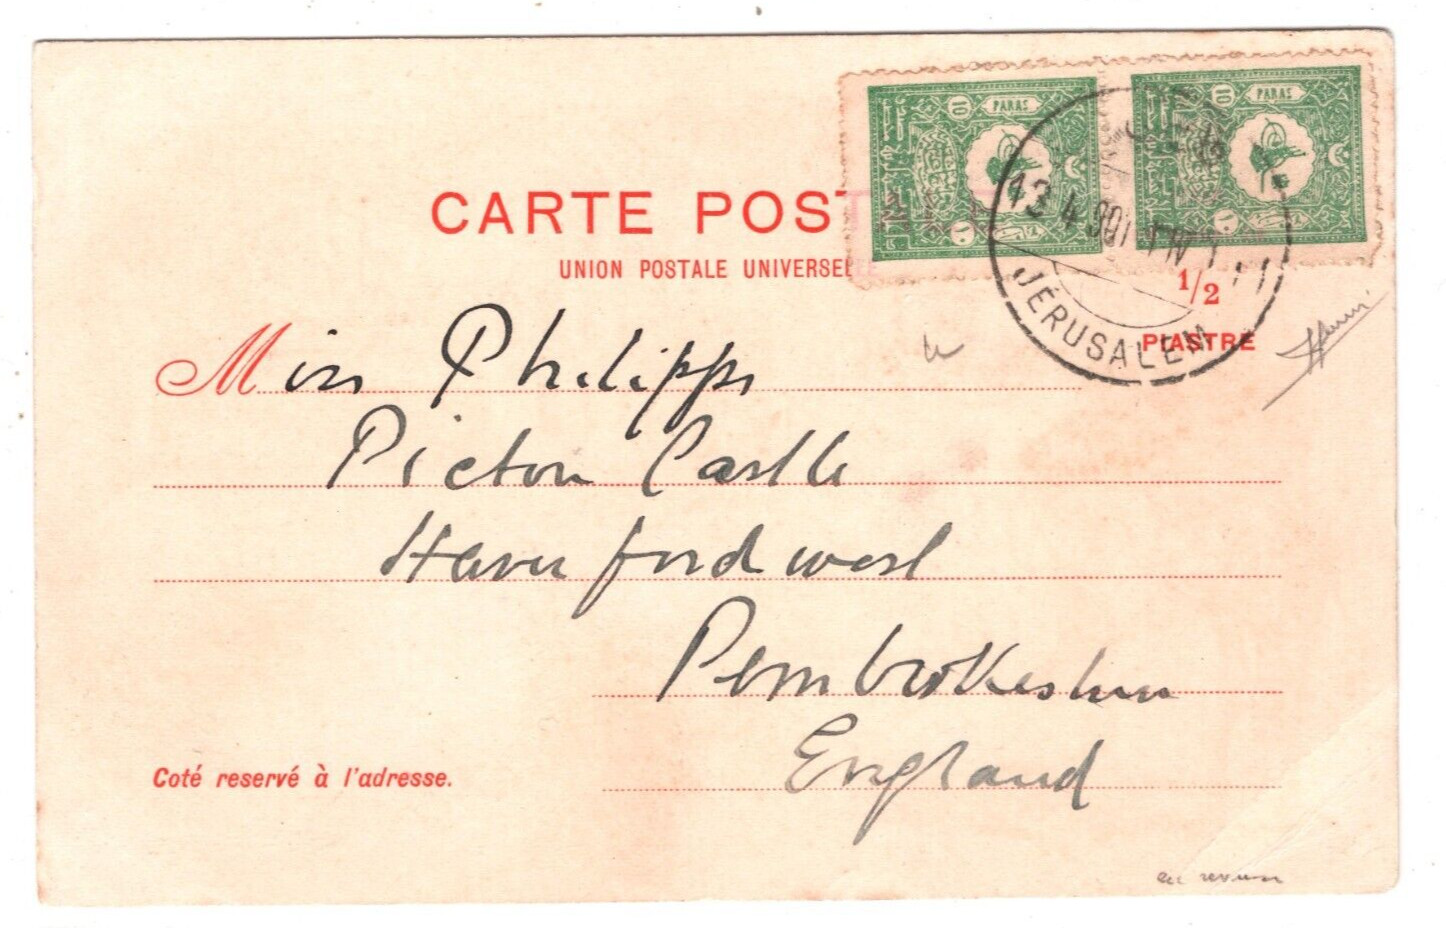 10 PARAS
10 PARAS
CARTE POST
UNION POSTALE UNIVERSELLE
13 4 901
JÉRUSALEM
1/2
PIASTRE
Miss Philipps
Picton Castle
Haverfordwest
Pembrokeshire
England
Coté reservé à l'adresse.